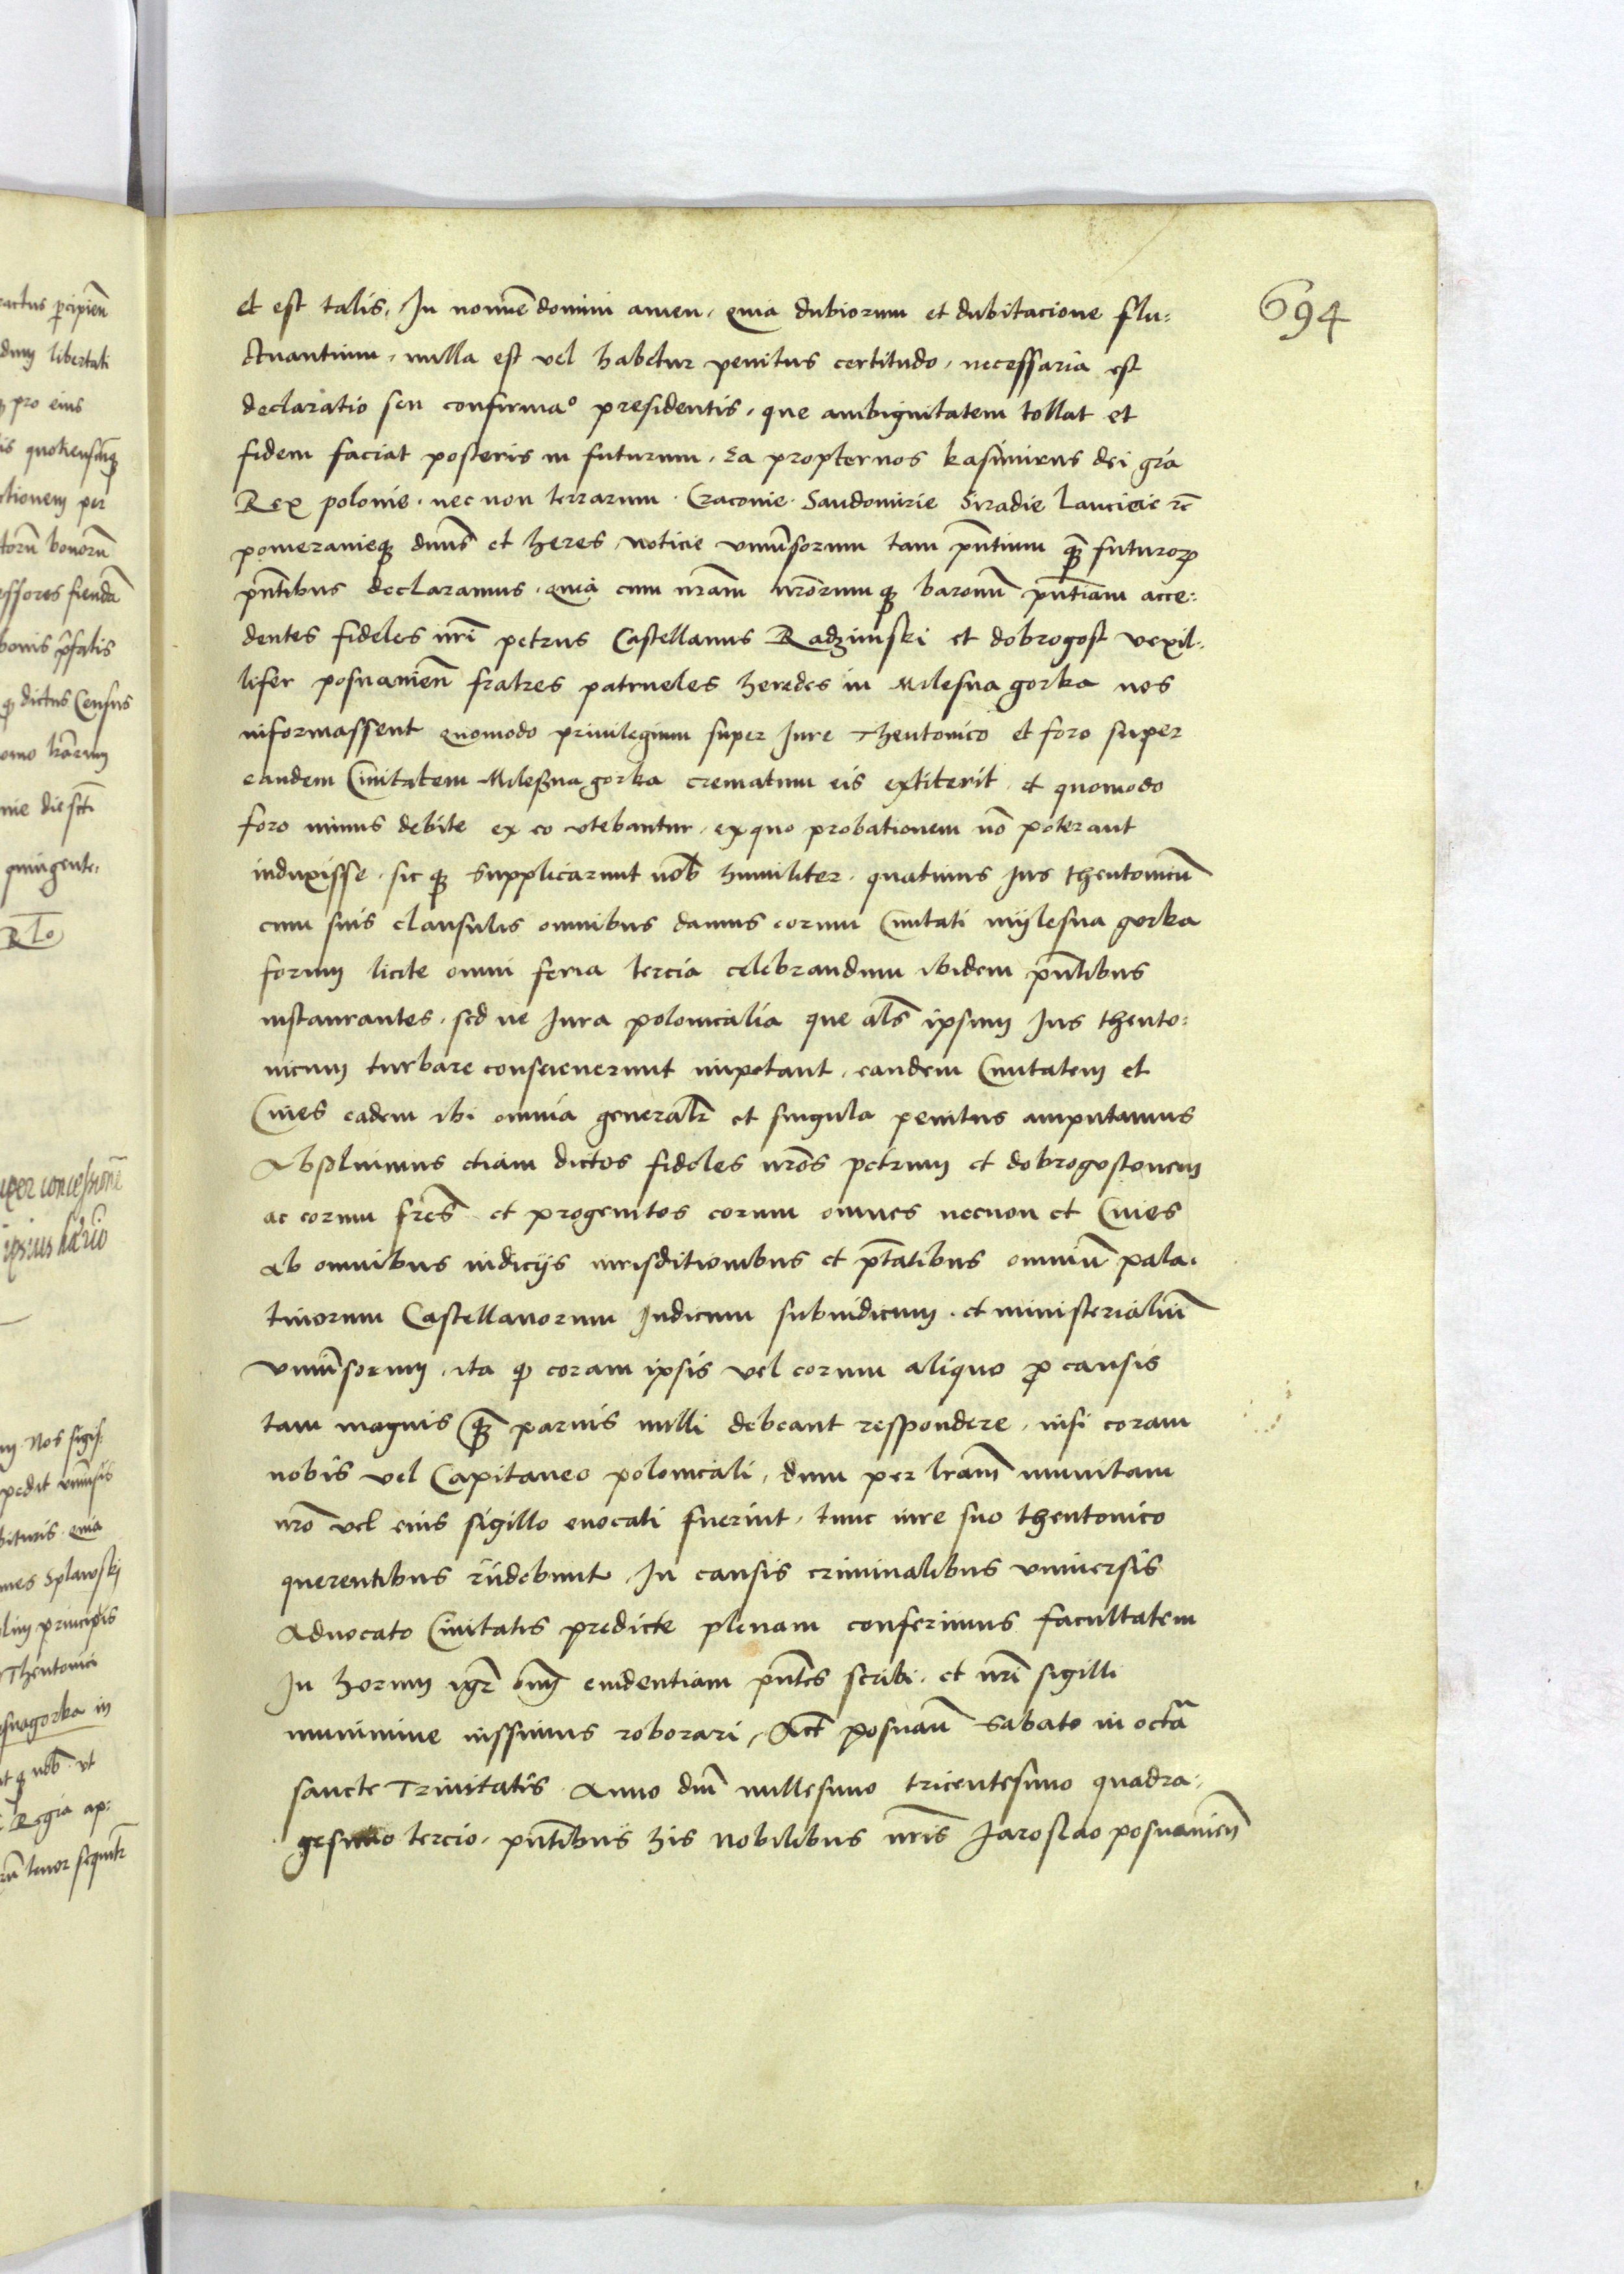 694
et est talis. In nomine domini amen. quia dubiorum et dubitacione flu:
ctuantium, nulla est vel habetur penitus certitudo, necessaria est
declaratio seu confirmaº presidentis, que ambiguitatem tollat et
fidem faciat posteris in futurum. Ea propter nos kasimirus dei grã
Rex polonie. nec non terrarum. Cracovie. Sandomirie Siradie Lancicie ꝛc̃
pomeranieqꝫ dnũs et heres, noticie vniũsorum tam pñtium qꝫ̃ futuroꝝ
pñtibus declaramus. quia cum nrãm nrõrumqꝫ baronũ pñtiam acce:
dentes fideles nrĩ petrus Castellanus Radzimski et dobrogost vexil:
lifer posnanieñ fratres patrueles heredes in Milesna gorka nos
informassent quomodo priuilegium super Iure Theutonico et foro super
eandem Ciuitatem Milesznagorka crematum eis extiterit. et quomodo
foro minus debite ex eo vtebantur, ex quo probationem nõ poterant
induxisse. sic qꝫ supplicarunt nob̃ humiliter. quatinus Ius theutonicũ
cum suis clausulis omnibus damus eorum Ciuitati mÿlesna gorka
forum licite omni feria tercia celebrandum ibidem pñtibus
instaurantes. sed ne Iura polonicalia que als̃ ipsum Ius theuto:
nicum turbare consueuerunt impetant, eandem Ciuitatem et
Ciues eadem ibi omnia generalr̃ et singula penitus amputamus
Absoluimus etiam dictos fideles nrõs petrum et dobrogostonem
ac eorum frẽs et progenitos eorum omnes necnon et Ciues
Ab omnibus iudicijs iurisditionibus et ptãtibus omniũ pala:
tinorum Castellanorum Iudicum subiudicum. et ministerialiũ
vniũsorum, ita ꝙ coram ipsis vel eorum aliquo ꝓ causis
tam magnis qꝫ̃ paruis nulli debeant respondere, nisi coram
nobis vel Capitaneo polonicali, dum per lrãm munitam
nrõ vel eius sigillo euocati fuerint. tunc iure suo theutonico
querentibus rñdebunt. In causis criminalibus vniuersis
Aduocato Ciuitatis predicte plenam conferimus facultatem
In horum igr̃ õm̃ euidentiam pñtes scribi. et nrĩ sigilli
munimine iussimus roborari, Act̃ posnañ Sabato in octã
sancte Trinitatis Anno dnĩ millesimo tricentesimo quadra:
gesimo tercio. pñtibus his nobilibus nrĩs Jaroslao posnanieñ